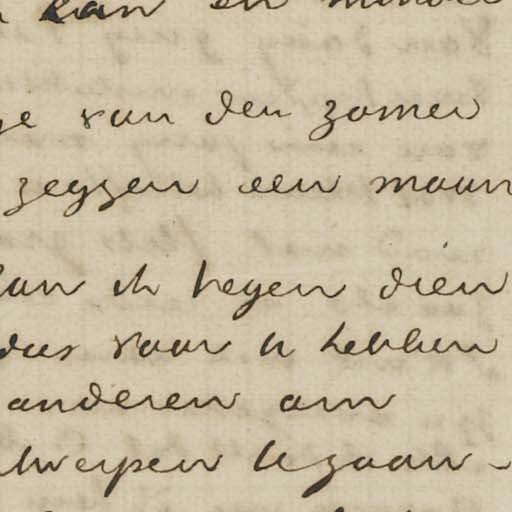 van den zomer
zeggen een maan
kan ik tegen dien
dus voor u hebben
anderen om
twerpen te gaan -